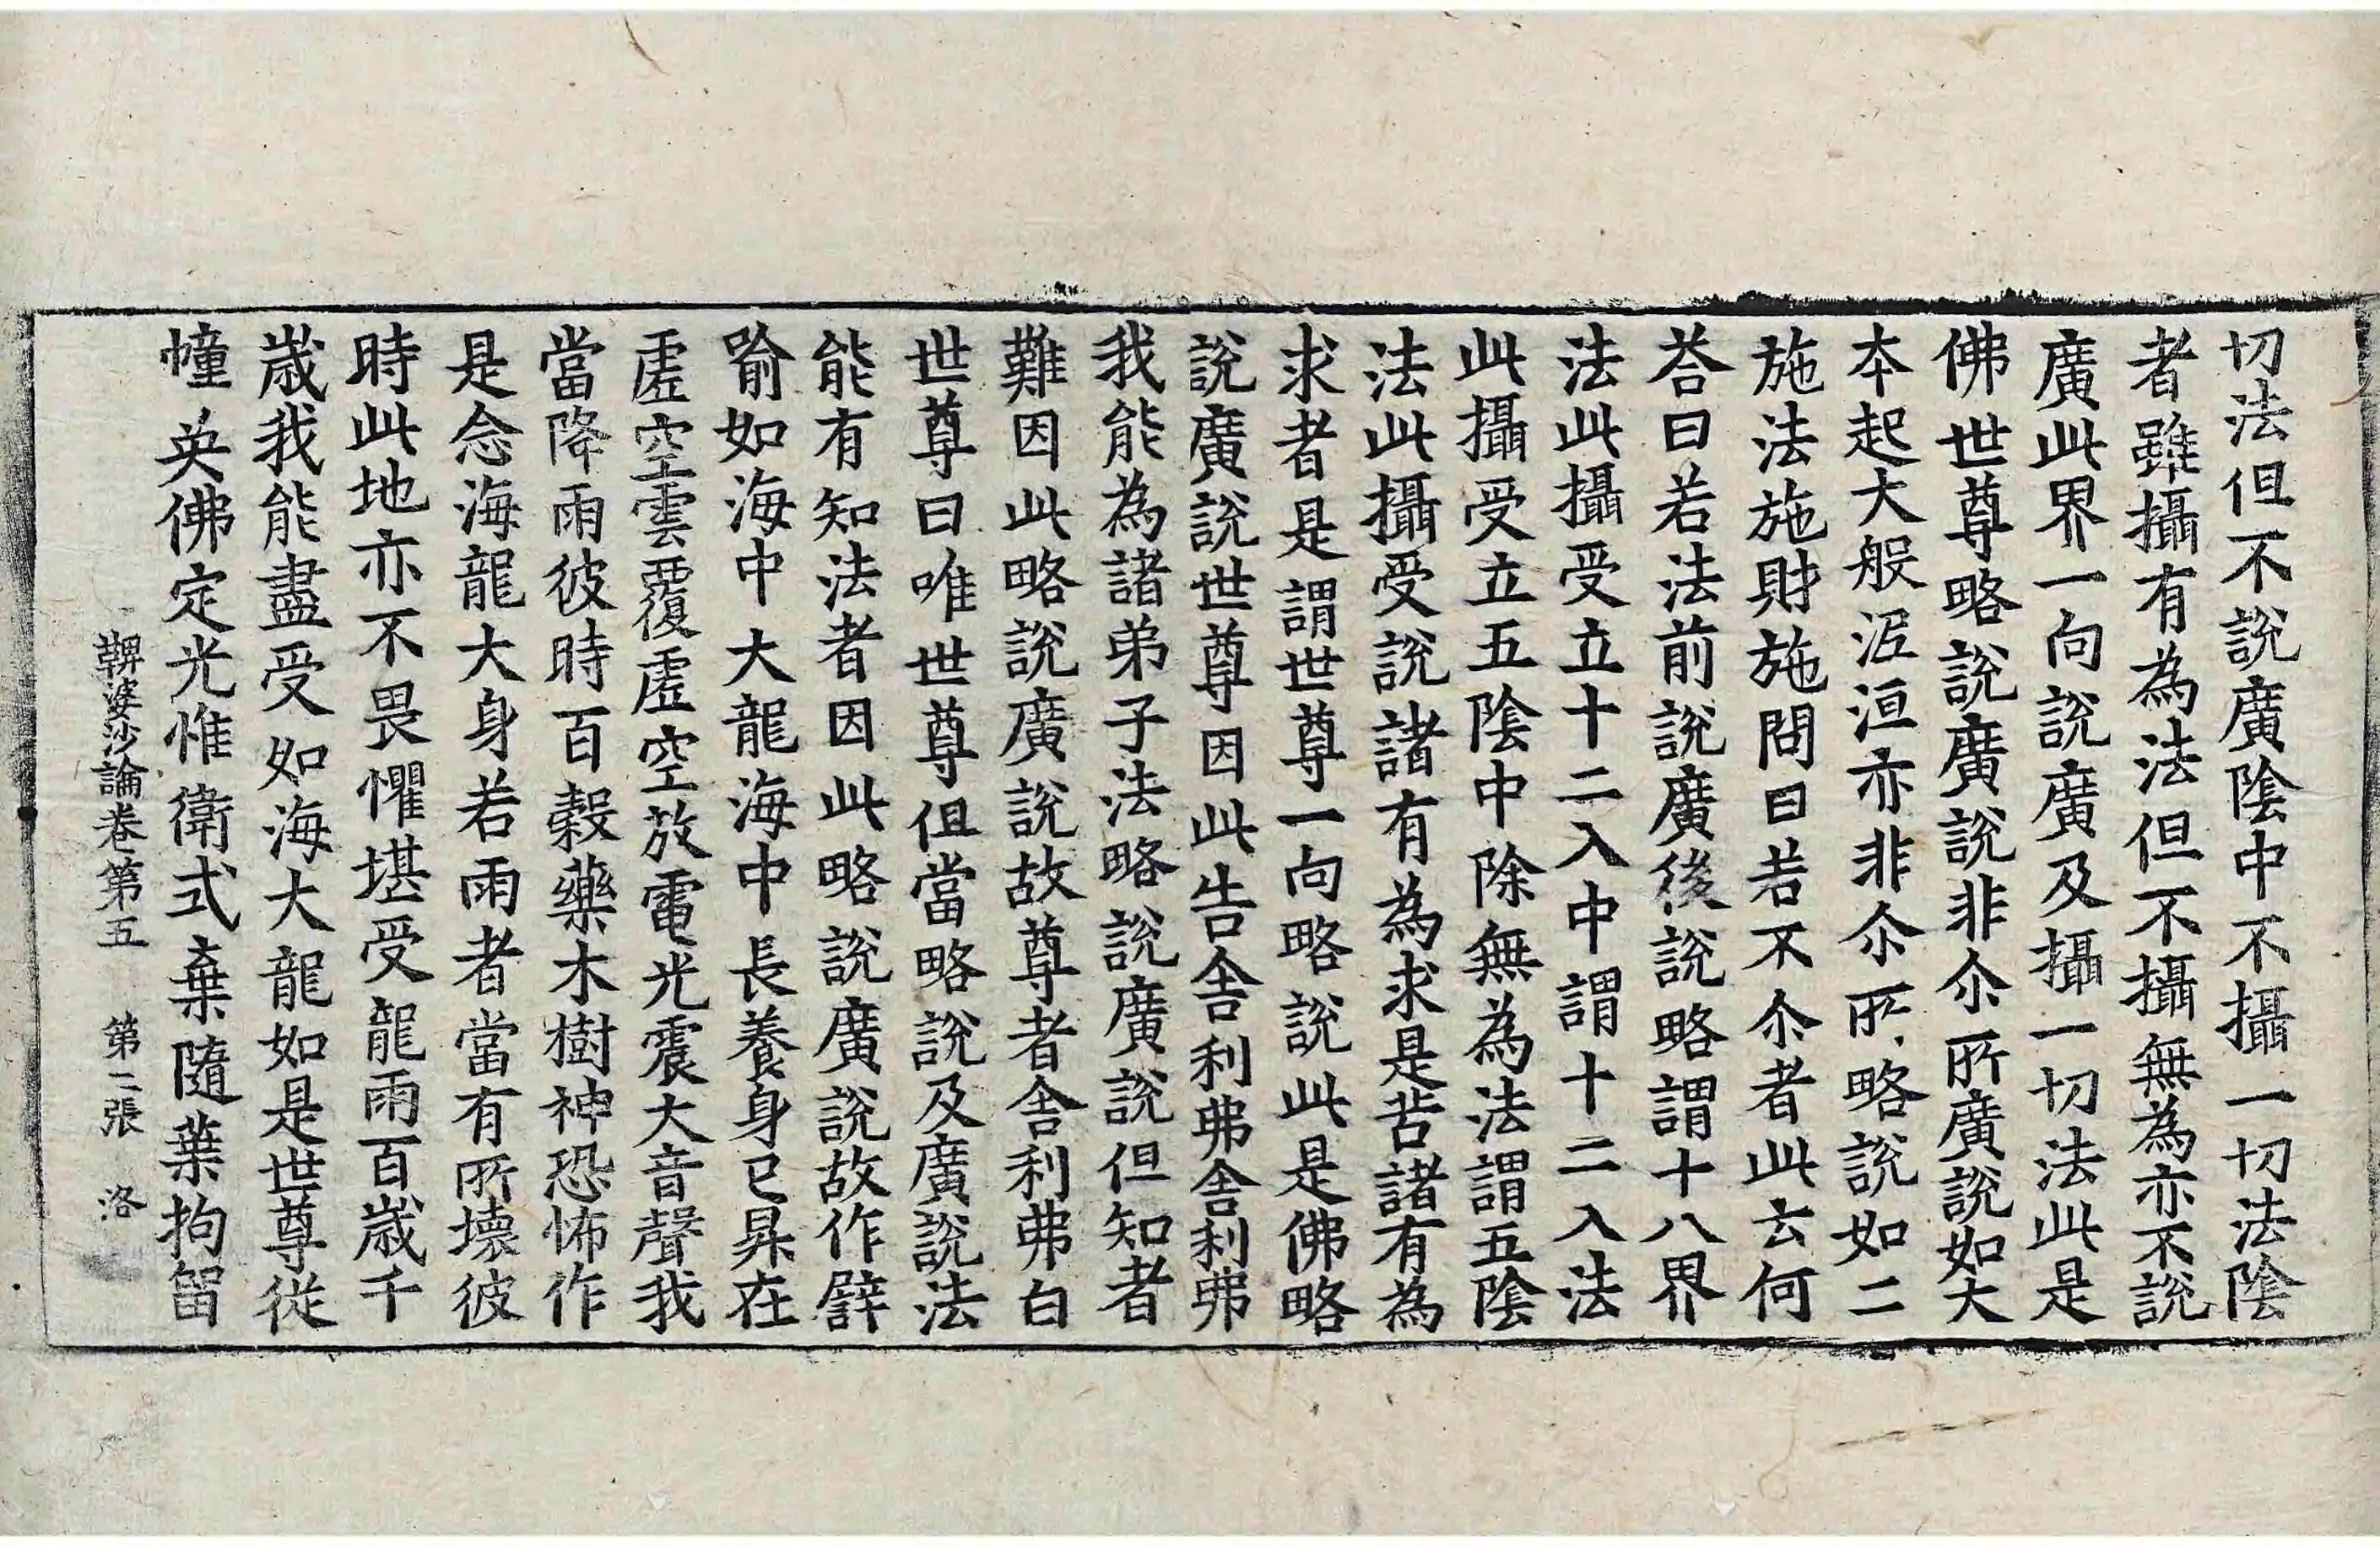 切法但不說廣陰中不攝一切法陰
者雖攝有為法但不攝無為亦不說
廣此界一向說廣及攝一切法此是
佛世尊略說廣說非尒所廣說如大
本起大般泥洹亦非尒所略說如二
施法施財施問曰若不尒者此云何
荅曰若法前說廣後說略謂十八界
法此攝受立十二入中謂十二入法
此攝受立五陰中除無為法謂五陰
法此攝受說諸有為求是苦諸有為
求者是謂世尊一向略說此是佛略
說廣說世尊因此告舍利弗舍利弗
我能為諸弟子法略說廣說但知者
難因此略說廣說故尊者舍利弗白
世尊曰唯世尊但當略說及廣說法
能有知法者因此略說廣說故作譬
喻如海中大龍海中長養身已昇在
虛空雲覆虛空放電光震大音聲我
當降雨彼時百穀藥木樹神恐怖作
是念海龍大身若雨者當有所壞彼
時此地亦不畏懼堪受龍雨百歲千
歲我能盡受如海大龍如是世尊從
幢英佛定光惟衛式棄隨葉拘留
鞞婆沙論卷第五　第二張　洛